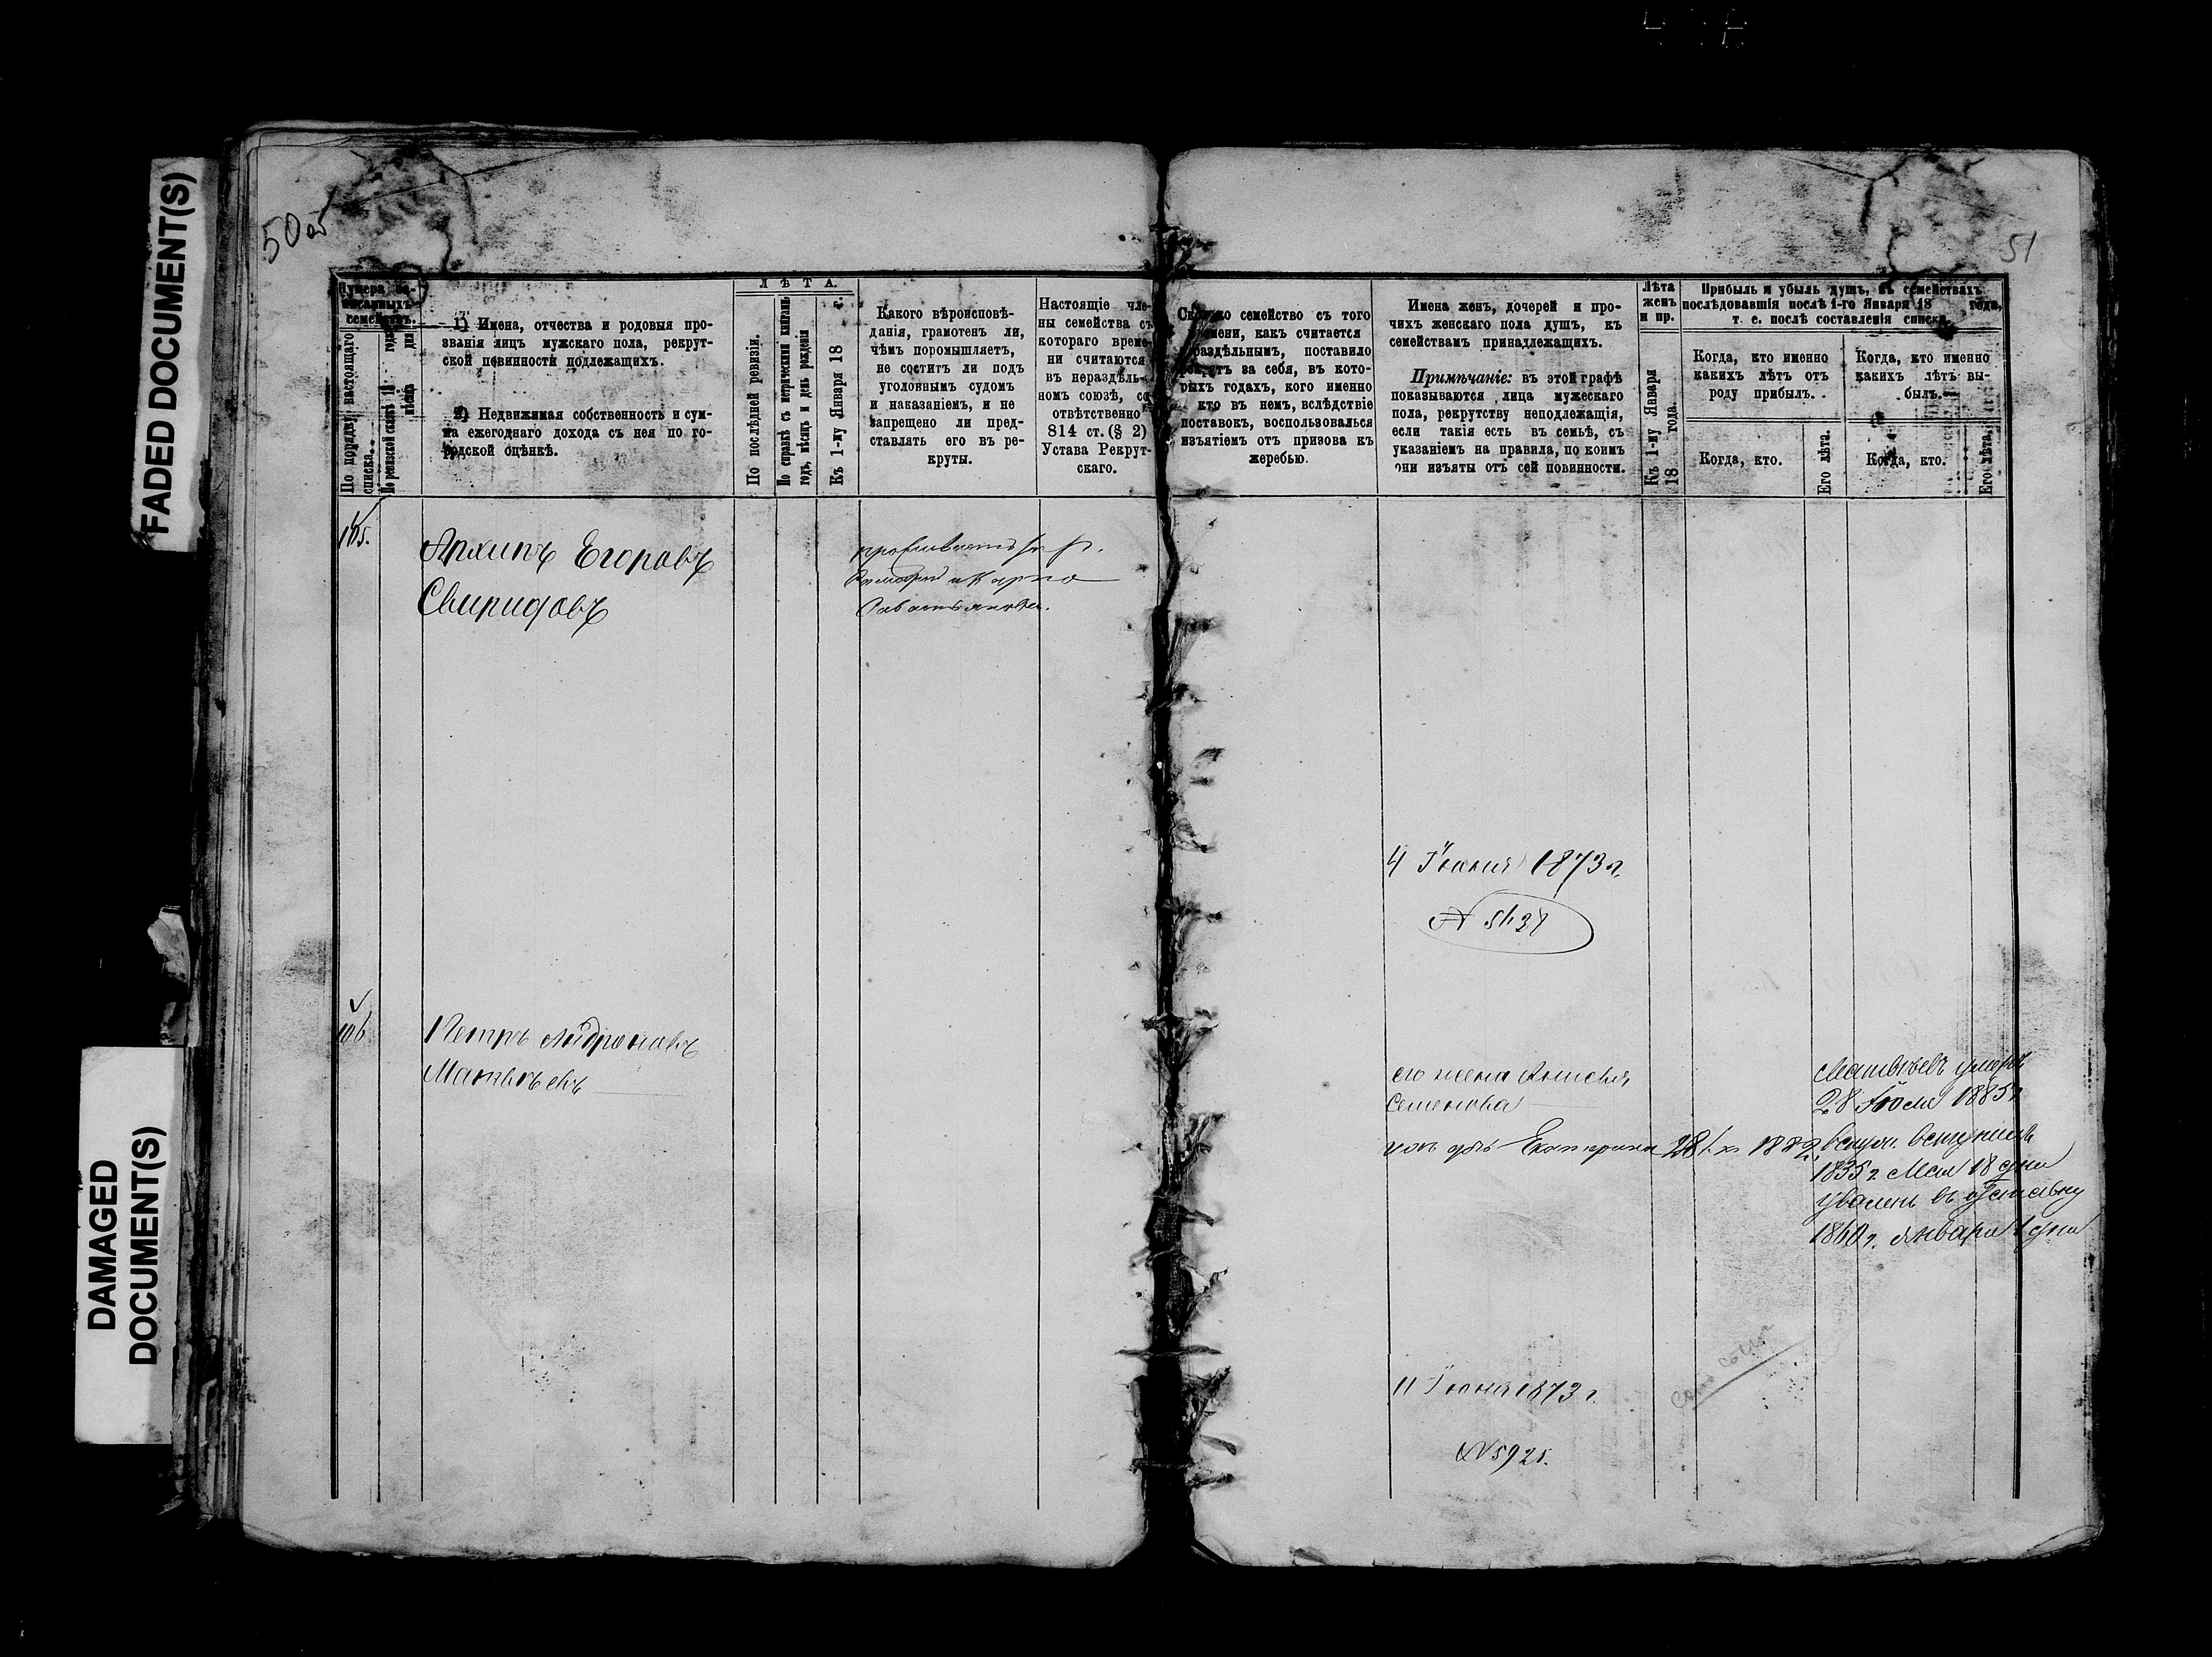 FADED DOCUMENT(S)
DAMAGED
DOCUMENT(S)
50об
51
Нумера за-
писанныхъ
семействъ.
По порядку настоящаго
списка.
По ревизской сказкѣ 18 года,
мѣсяца дня
1) Имена, отчества и родовыя про-
званія лицъ мужскаго пола, рекрут-
ской повинности подлежащихъ.
2) Недвижимая собственность и сум-
ма ежегоднаго дохода съ нея по го-
родской оцѣнкѣ.
ЛѢТА.
По послѣдней ревизіи.
По справкѣ съ метрическими книгами
годъ, мѣсяцъ и день рожденія
Къ 1-му Января 18 г.
Какого вѣроисповѣ-
данія, грамотенъ ли,
чѣмъ поромышляетъ,
не соститъ ли подъ
уголовнымъ судомъ
и наказаніемъ, и не
запрещено ли пред-
ставлять его въ ре-
круты.
Настоящіе чле-
ны семейства съ
котораго време-
ни считаются
въ нераздѣль-
номъ союзѣ, со
отвѣтственно
814 ст. (§ 2)
Устава Рекрут-
скаго.
Сколько семейство съ того
времени, какъ считается
раздѣльнымъ, поставило
рекрутъ за себя, въ кото-
рыхъ годахъ, кого именно
кто въ немъ, вслѣдствіе
поставокъ, воспользовалься
изъятіемъ отъ призова къ
жеребью.
Имена женъ, дочерей и про-
чихъ женскаго пола душъ, къ
семействамъ принадлежащихъ.
Примѣчаніе: въ этой графѣ
показываются лица мужескаго
пола, рекрутству неподлежащія,
если такія есть въ семьѣ, съ
указаніемъ на правила, по коимъ
они изъяты отъ сей повинности.
Лѣта
женъ
и пр.
Къ 1-му Января
18 года.
Прибыль и убыль душъ, въ семействахъ
послѣдовавшія послѣ 1-го Января 18 года,
т. е. послѣ составленія списка.
Когда, кто именно
какихъ лѣтъ отъ
роду прибылъ.
Когда, кто.
Его лѣта.
Когда, кто именно
какихъ лѣтъ вы-
былъ.
Когда, кто.
Его лѣта.
105.
Архипъ Егоровъ
Свиридовъ
проживаетъ
4 Іюня 1873 г.
№
106
Петръ Андроновъ
Матвѣевъ
его жена Анисья
Семенова
Екатерина
Матвѣевъ умеръ
28 Іюля 1885 г.
вступилъ
1835 г. Мая 18 дня
уволенъ въ отставку
1860 г. Января 1 дня
11 Іюня 1873 г.
№ 5925.